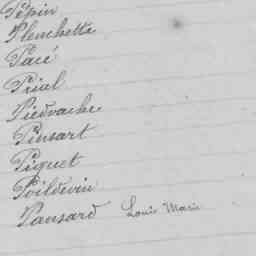 Pépin
Plenchette
Pacé
Prial
Piedvache
Pinsart
Piquet
Poildevin
Pansard Louis Marie